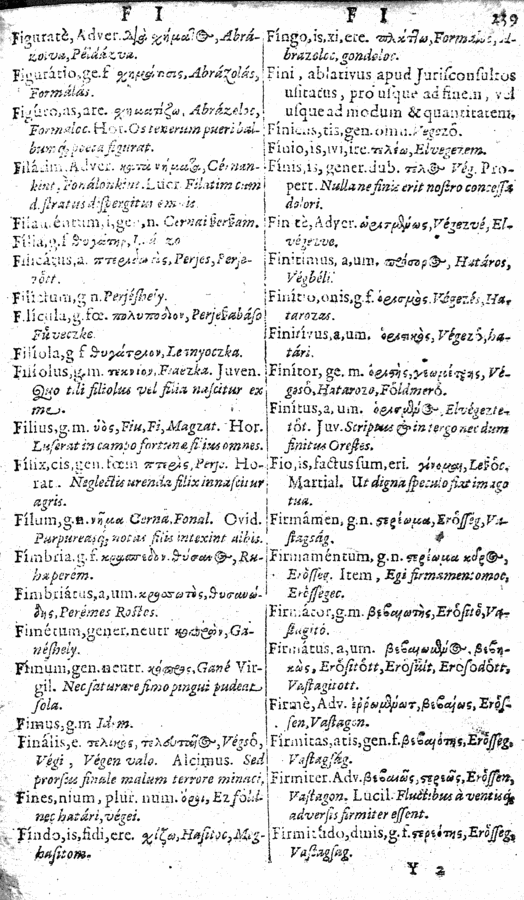 F I
F I 239
Figuratè, Adver. Abrá-
zolva, Példázva.
Figurátio, ge. f. Abrázolás,
Formálás.
Figúro, as, are. σχηματίζω, Abrázoloc,
Formaloc. Hor. Os tenerum pueri bal-
bumq; poeta figurat.
Filátim, Adver. Cérnan-
kint, Fonálonkint. Lucr. Filatim cum
distratus dispergitur
Filaméntum, i, gen, n.
Fília, g. f. θυγάτηρ,
Filicátus, a. Perjes, Perje-
zött.
Filictum, g n. Perjéshely.
Filícula, g. fœ. πολυπόδιον,
Füveczke.
Filíola, g f θυγάτριον, Leányoczka.
Filíolus, g. m. τεκνίον, Fiaczka. Juven.
Quo tibi filiolus vel filia nascitur ex
me.
Fílius, g. m. υἱὸς, Fiu, Fi, Magzat. Hor.
Luserat in campo fortunæ filius omnes.
Fílix, cis, gen. fœm πτερὶς, Perje. Ho-
rat. Neglectis urenda filix innascitur
agris.
Fílum, g. n. νῆμα Cerna, Fonal. Ovid.
Purpureasq; notas filis intexint albis.
Fímbria, g. f. κράσπεδον, Ru-
haperém.
Fimbriátus, a, um.
Perémes Roitos.
Fimétum, gener. neutr Ga-
néshely.
Fimum, gen. neutr. κόπρος, Gané Vir-
gil. Nec saturare fimo pingui pudeat
sola.
Fimus, g. m Idem.
Finális, e. τελικὸς, Végső,
Végi, Végen valo. Alcimus. Sed
prorsus finale malum terrore minaci,
Fines, nium, plur. num. ὅροι, Ez föld-
nec határi, végei.
Findo, is, fidi, ere. χίζω, Hasitoc, Meg-
hasitom.
Fíngo, is, xi, ere. πλάττω, Formaloc, A-
brazoloc, gondoloc.
Fini, ablativus apud Jurisconsultos
usitatus, pro usque ad finem, vel
usque ad modum & quantitatem,
Finiens, tis, gen. omn. Végező.
Finio, is, ivi, ire. Elvegezem.
Finis, is, gener. dub. Vég. Pro-
pert. Nulla ne finis erit nostro concessa
dolori.
Finitè, Adver. Végezvé, El-
végezve.
Finitimus, a, um. Határos,
Végbéli.
Finitio, onis, g f. ὁρισμὸς. Végezés, Ha-
tarozas.
Finitívus, a, um. ὁριστικὸς, Végező, ha-
tári.
Finitor, ge. m. ὁριστὴς, γεωμέτρης, Vé-
gező, Hatarozo, Földmérő.
Finitus, a, um. Elvégezte-
tőt. Juv. Scriptus & in tergo nec dum
finitus Orestes.
Fio, is, factus sum, eri. γίνομαι, Leszöc.
Martial. Ut digna speculo fiat imago
tua.
Firmámen, g. n. στερέωμα, Erősség, Va-
stagság.
Firmaméntum, g. n. στερέωμα
Erősség. Item, Egi firmamentomoc,
Erősségec.
Firmátor, g. m. βεβαιωτὴς, Erősitő, Va-
stagitó.
Firmátus, a, um.
Erősitőtt, Erősült, Erősodőtt,
Vastagitott.
Firmè, Adv. βεβαίως, Erős-
sen, Vastagon.
Firmitas, atis, gen. f. βεβαιότης, Erősség,
Vastagság.
Firmiter. Adv. βεβαίως, Erőssen,
Vastagon. Lucil. Fluctibus à ventisq;
adversis firmiter essent.
Firmitúdo, dinis, g. f. στερεότης, Erősség,
Vastagság.
Y 2